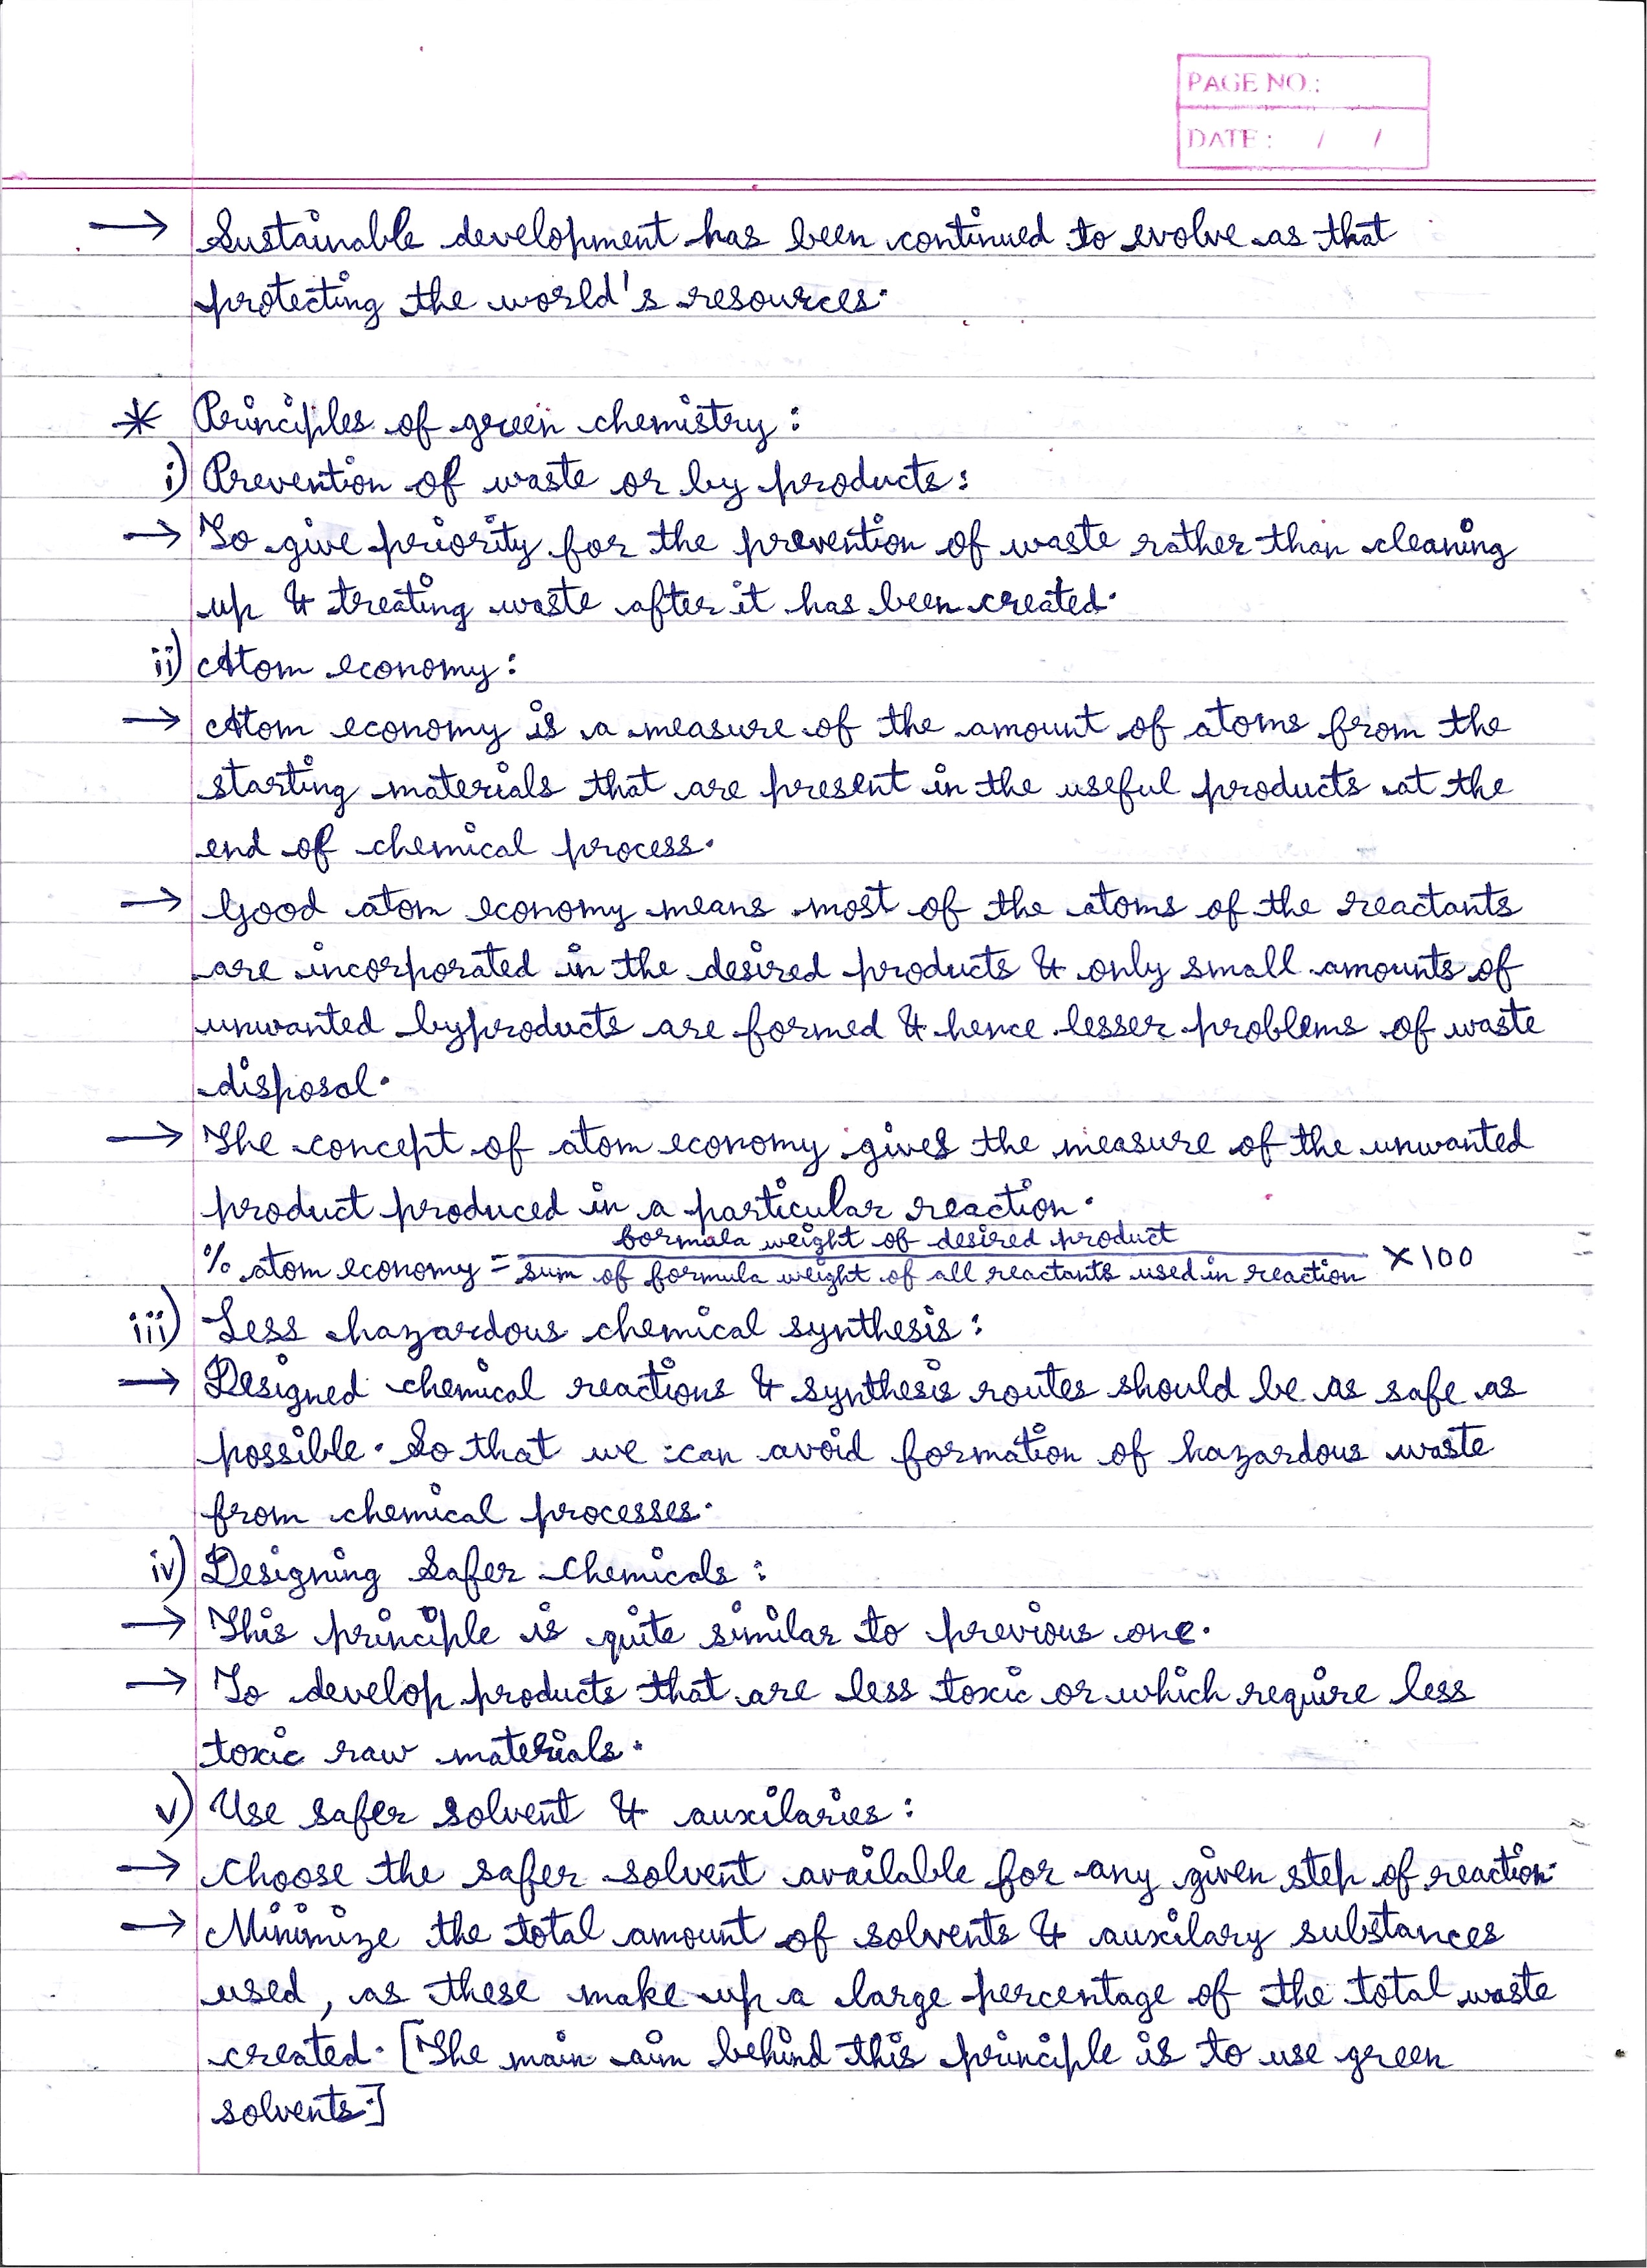 PAGE NO.:
DATE : / /
→ Sustainable development has been continued to evolve as that
protecting the world's resources.
* Principles of green chemistry :
i) Prevention of waste or by products :
→ To give priority for the prevention of waste rather than cleaning
up & treating waste after it has been created.
ii) Atom economy :
→ Atom economy is a measure of the amount of atoms from the
starting materials that are present in the useful products at the
end of chemical process.
→ Good atom economy means most of the atoms of the reactants
are incorporated in the desired products & only small amounts of
unwanted byproducts are formed & hence lesser problems of waste
disposal.
→ The concept of atom economy gives the measure of the unwanted
product produced in a particular reaction.
formula weight of desired product
% atom economy = ——— × 100
sum of formula weight of all reactants used in reaction
iii) Less hazardous chemical synthesis :
→ Designed chemical reactions & synthesis routes should be as safe as
possible. So that we can avoid formation of hazardous waste
from chemical processes.
iv) Designing Safer Chemicals :
→ This principle is quite similar to previous one.
→ To develop products that are less toxic or which require less
toxic raw materials.
v) Use safer solvent & auxilaries :
→ Choose the safer solvent available for any given step of reaction.
→ Minimize the total amount of solvents & auxilary substances
used, as these make up a large percentage of the total waste
created. [The main aim behind this principle is to use green
solvents.]